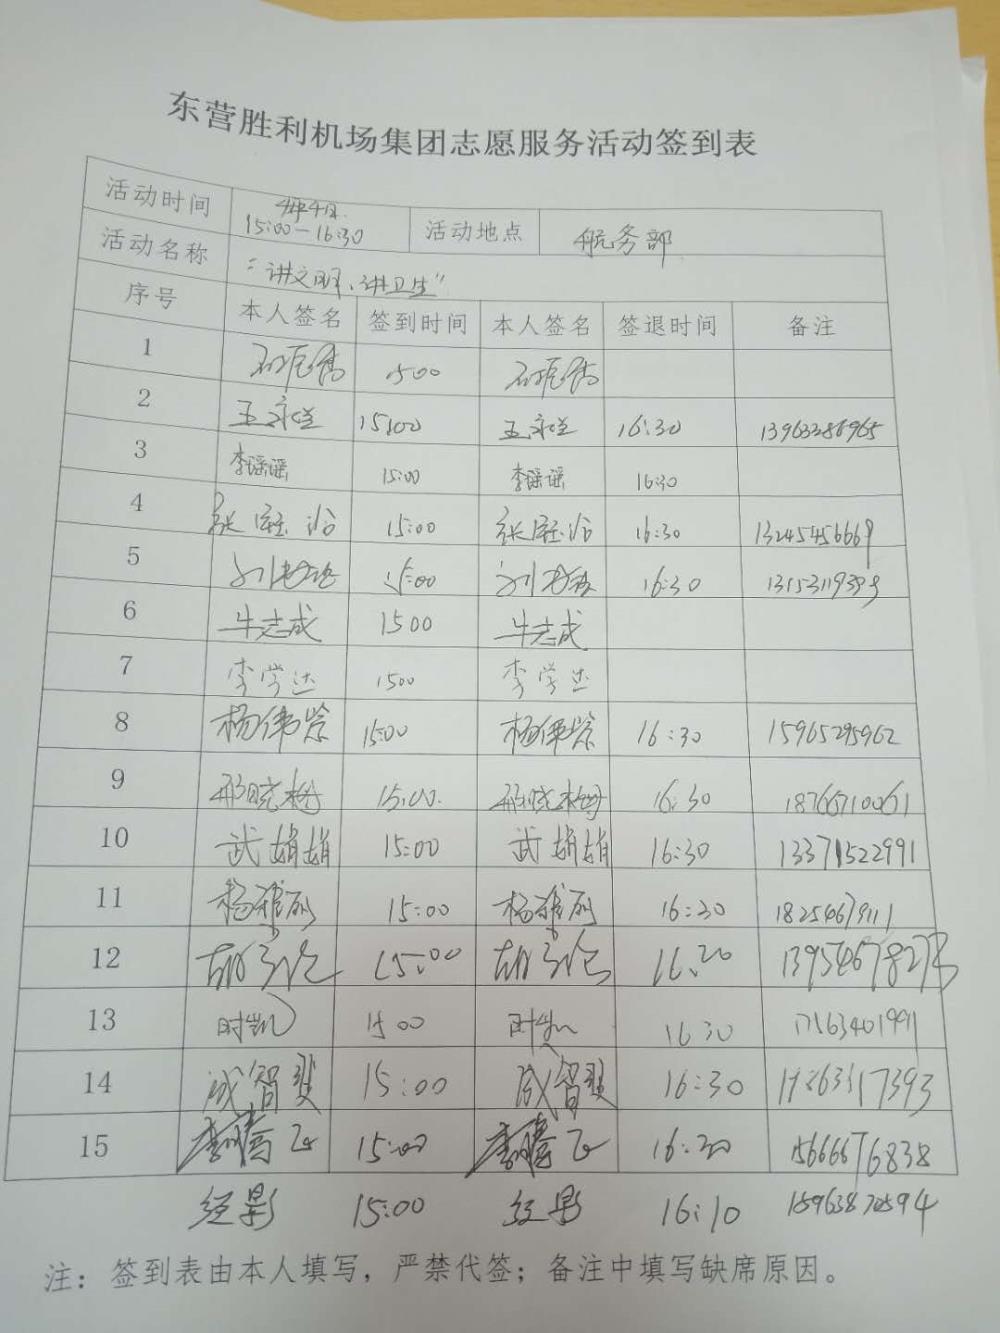 东营胜利机场集团志愿服务活动签到表
活动时间 15:00-16:30 活动地点 航务部
活动名称 "讲文明、讲卫生"
序号 本人签名 签到时间 本人签名 签退时间 备注
1 1500
2 王永兰 15:00 王永兰 16:30 13963386965
3 李瑶瑶 15:00 李瑶瑶 16:30
4 15:00 16:30 13245456669
5 15:00 16:30
6 牛志成 1500 牛志成
7 李学达 1500 李学达
8 15:00 16:30 15965295962
9 邢晓梅 15:00 邢晓梅 16:30 18766710061
10 武娟娟 15:00 武娟娟 16:30 13371522991
11 杨雅丽 15:00 杨雅丽 16:30 18254679111
12 15:00 16:20 13954678273
13 时凯 1500 时凯 16:30 17563401991
14 成智斐 15:00 成智斐 16:30
15 李腾飞 15:00 李腾飞 16:30 15666676838
经影 15:00 经影 16:10 15963870594
注：签到表由本人填写，严禁代签；备注中填写缺席原因。